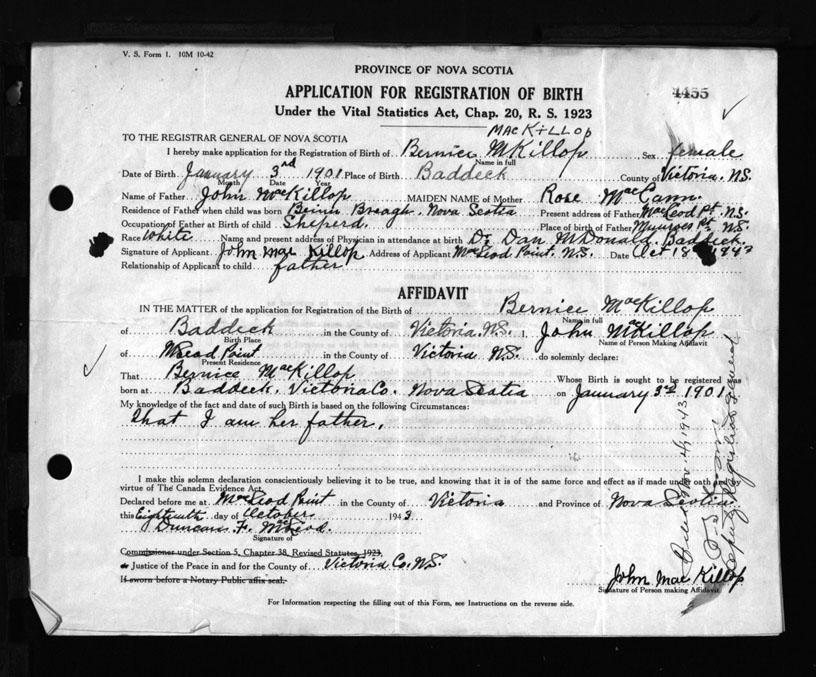 V. S. Form 1. 10M 10-42
PROVINCE OF NOVA SCOTIA
APPLICATION FOR REGISTRATION OF BIRTH
4455
Under the Vital Statistics Act, Chap. 20, R. S. 1923
MacKillop
TO THE REGISTRAR GENERAL OF NOVA SCOTIA
I hereby make application for the Registration of Birth of Bernice McKillop Sex female
Name in full
Date of Birth January 3rd 1901 Place of Birth Baddeck County of Victoria. N.S.
Month Date Year
Name of Father John MacKillop MAIDEN NAME of Mother Rose MacCann.
Residence of Father when child was born Beinn Breagh. Nova Scotia Present address of Father MacLeod Pt. N.S.
Occupation of Father at Birth of child Sheperd. Place of birth of Father Munroes Pt. N.S.
Race White Name and present address of Physician in attendance at birth Dr. Dan McDonald. Baddeck.
Signature of Applicant John Mac Killop Address of Applicant MacLeod Point. N.S. Date Oct 18th 1943
Relationship of Applicant to child father
AFFIDAVIT
IN THE MATTER of the application for Registration of the Birth of Bernice MacKillop
Name in full
of Baddeck in the County of Victoria. N.S. I, John McKillop
Birth Place Name of Person Making Affidavit
of McLeod Point in the County of Victoria N.S. do solemnly declare:
Present Residence
That Bernice MacKillop Whose Birth is sought to be registered was
born at Baddeck. Victoria Co. Nova Scotia on January 3rd 1901
My knowledge of the fact and date of such Birth is based on the following Circumstances:
that I am her father.
I make this solemn declaration conscientiously believing it to be true, and knowing that it is of the same force and effect as if made under oath and by
virtue of The Canada Evidence Act.
Declared before me at MacLeod Point in the County of Victoria and Province of Nova Scotia
this Eighteenth day of October 1943
Duncan. F. McLeod.
Signature of
Commissioner under Section 5, Chapter 38, Revised Statutes, 1923,
or Justice of the Peace in and for the County of Victoria Co. N.S.
If sworn before a Notary Public affix seal.
John Mac Killop
Signature of Person making Affidavit
For Information respecting the filling out of this Form, see Instructions on the reverse side.
Nov 4, 1943
Deputy Registrar General